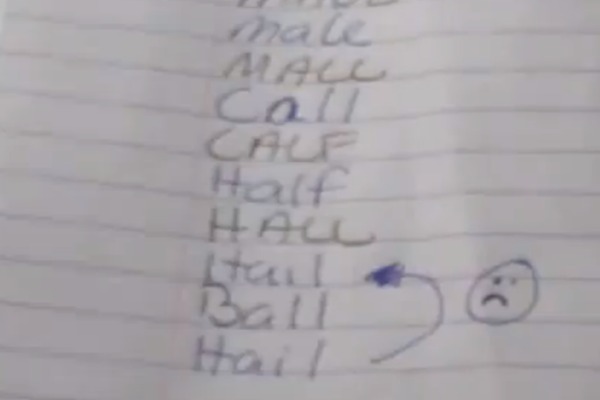 male
MALL
Call
CALF
Half
HALL
Ball
Hail